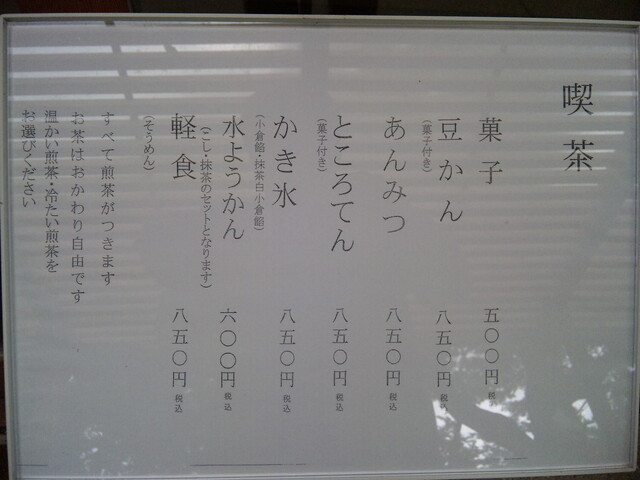 喫茶
菓子 五〇〇円 税込
豆かん 八五〇円 税込
(菓子付き)
あんみつ 八五〇円 税込
ところてん 八五〇円 税込
(菓子付き)
かき氷 八五〇円 税込
(小倉餡・抹茶白小倉餡)
水ようかん 六〇〇円 税込
(こし・抹茶のセットとなります)
軽食 八五〇円 税込
(そうめん)
すべて煎茶がつきます
お茶はおかわり自由です
温かい煎茶・冷たい煎茶を
お選びください